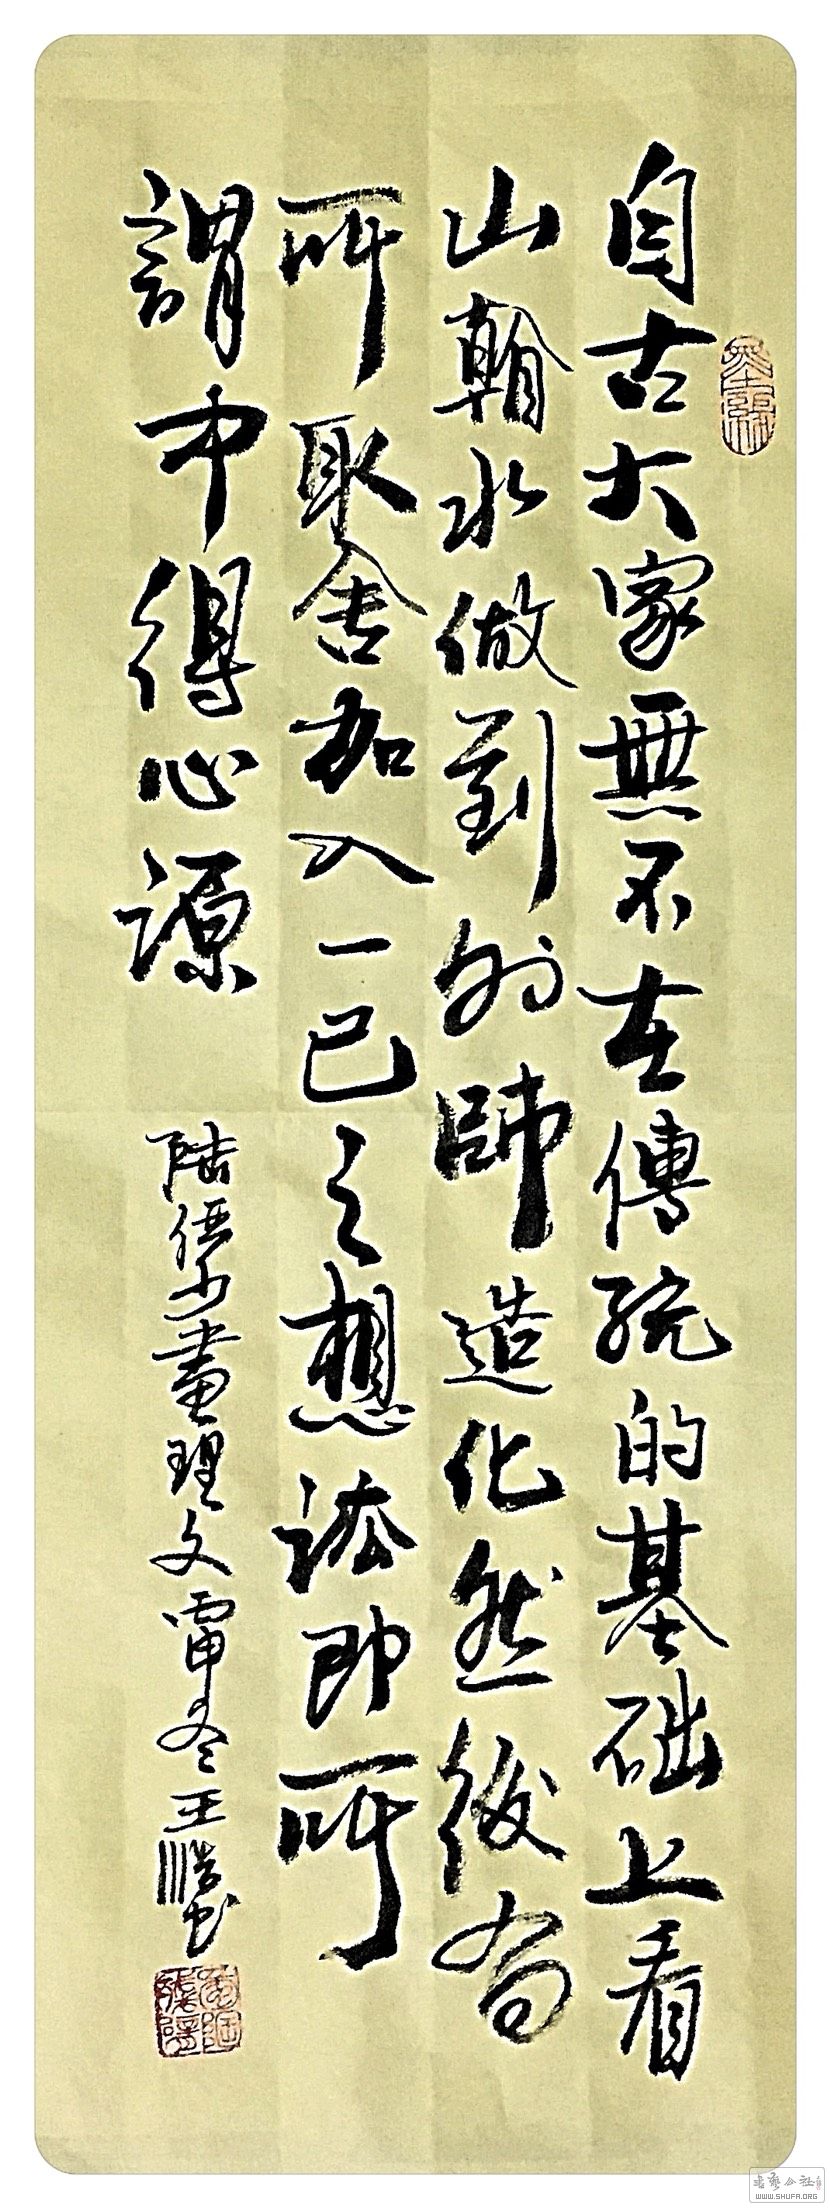 自古大家無不在傳统的基础上看
山翰水做到外師造化然後有
所取舍加入一己之想法即所
謂中得心源
陆俨少畫理文 甲冬王浩书
WWW.SHUFA.ORG